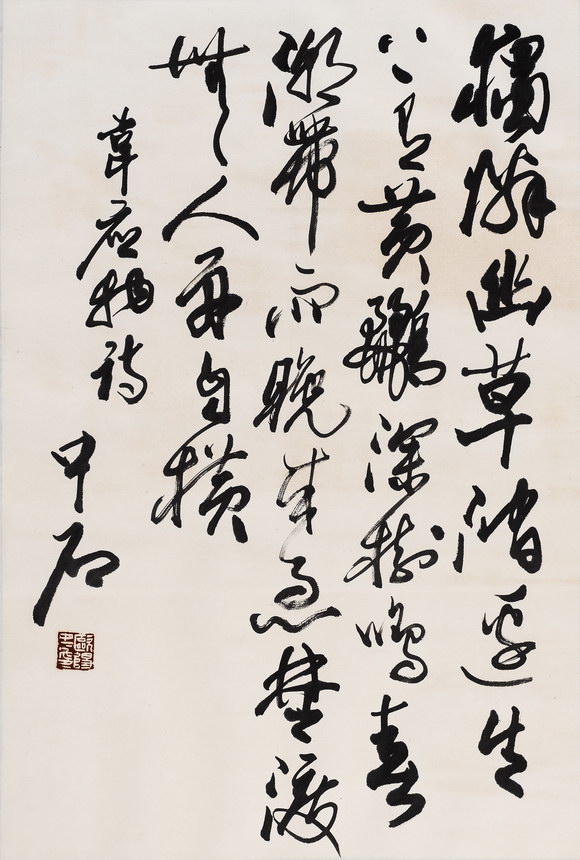 獨憐幽草澗邊生
上有黃鸝深樹鳴春
潮帶雨晚來急埜渡
無人舟自橫
韋應物詩
中石
歐陽中石